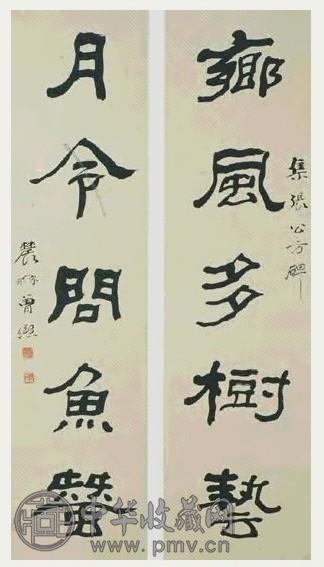 集張公方碑
鄉風多樹
月令問魚蠶
農髯曾熙
中华收藏网
www.pmv.cn